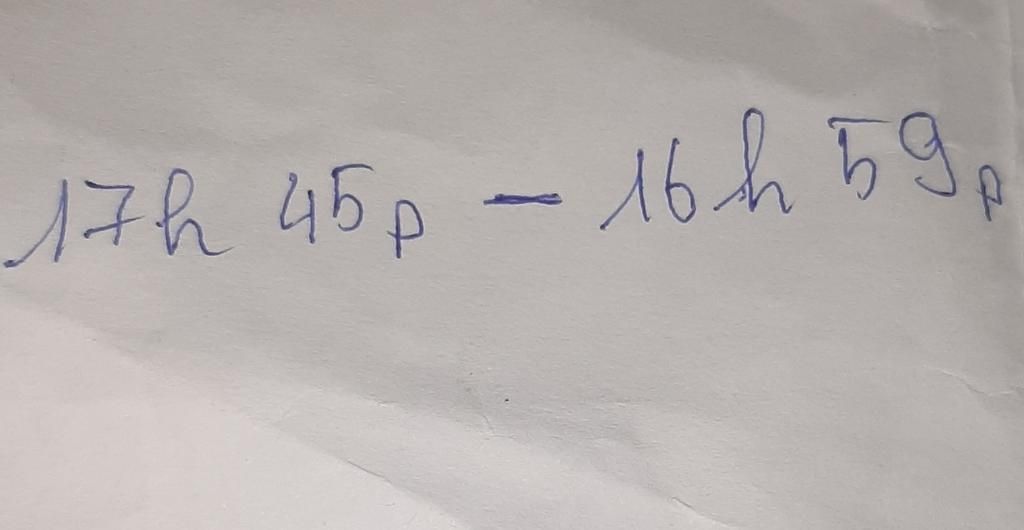 17h 45p - 16h 59p